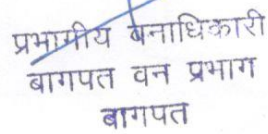 प्रभागीय बनाधिकारी
बागपत वन प्रभाग
बागपत